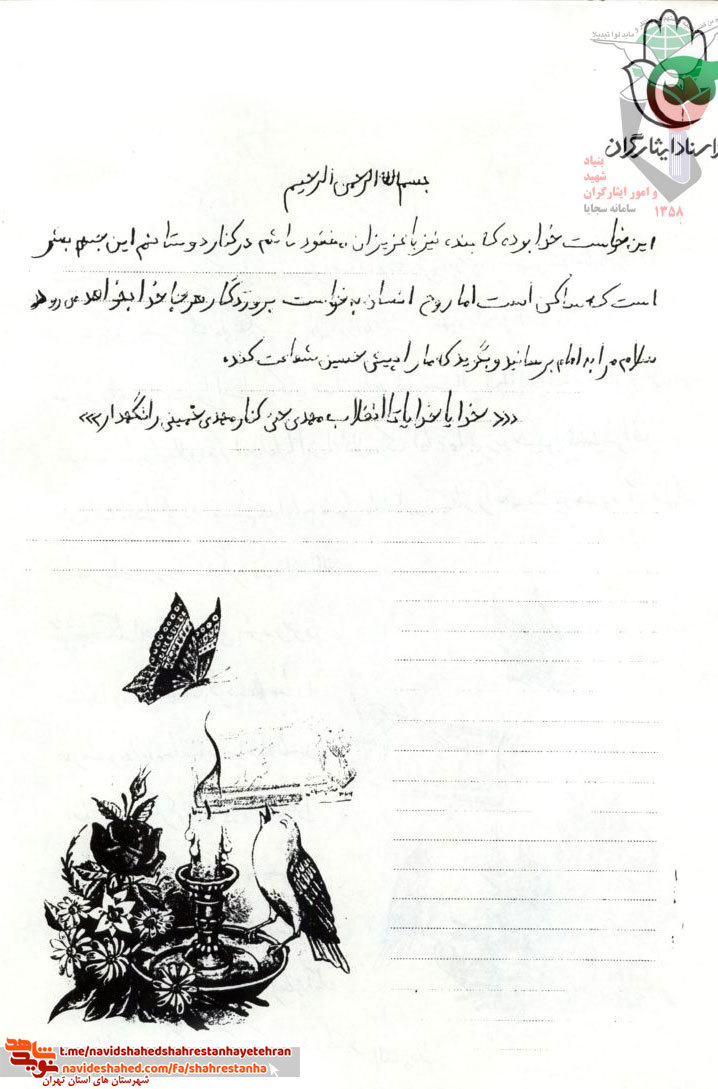 اسناد ایثارگران
بنیاد
شهید
و امور ایثارگران
سامانه سجایا ۱۳۵۸
بسم الله الرحمن الرحیم
این خواست خدا بوده که بنده نیز با عزیزان مفقود باشم در کنار دوستانم این جسم بشر
است که ساکن است اما روح انسان به خواست پروردگار هر جا خدا بخواهد می رود
سلام مرا به امام برسانید و بگوید که ما را پیش حسین شفاعت کند.
«««خدایا خدایا تا انقلاب مهدی حتی کنار مهدی خمینی را نگهدار»»»
نوید شاهد
t.me/navidshahedshahrestanhayetehran
navideshahed.com/fa/shahrestanha
شهرستان های استان تهران